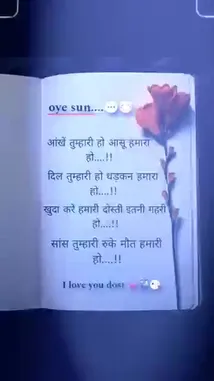 oye sun....💬😘
आंखें तुम्हारी हो आसू हमारा
हो....!!
दिल तुम्हारी हो धड़कन हमारा
हो....!!
खुदा करें हमारी दोस्ती इतनी गहरी
हो....!!
सांस तुम्हारी रुके मौत हमारी
हो....!!
I love you dost